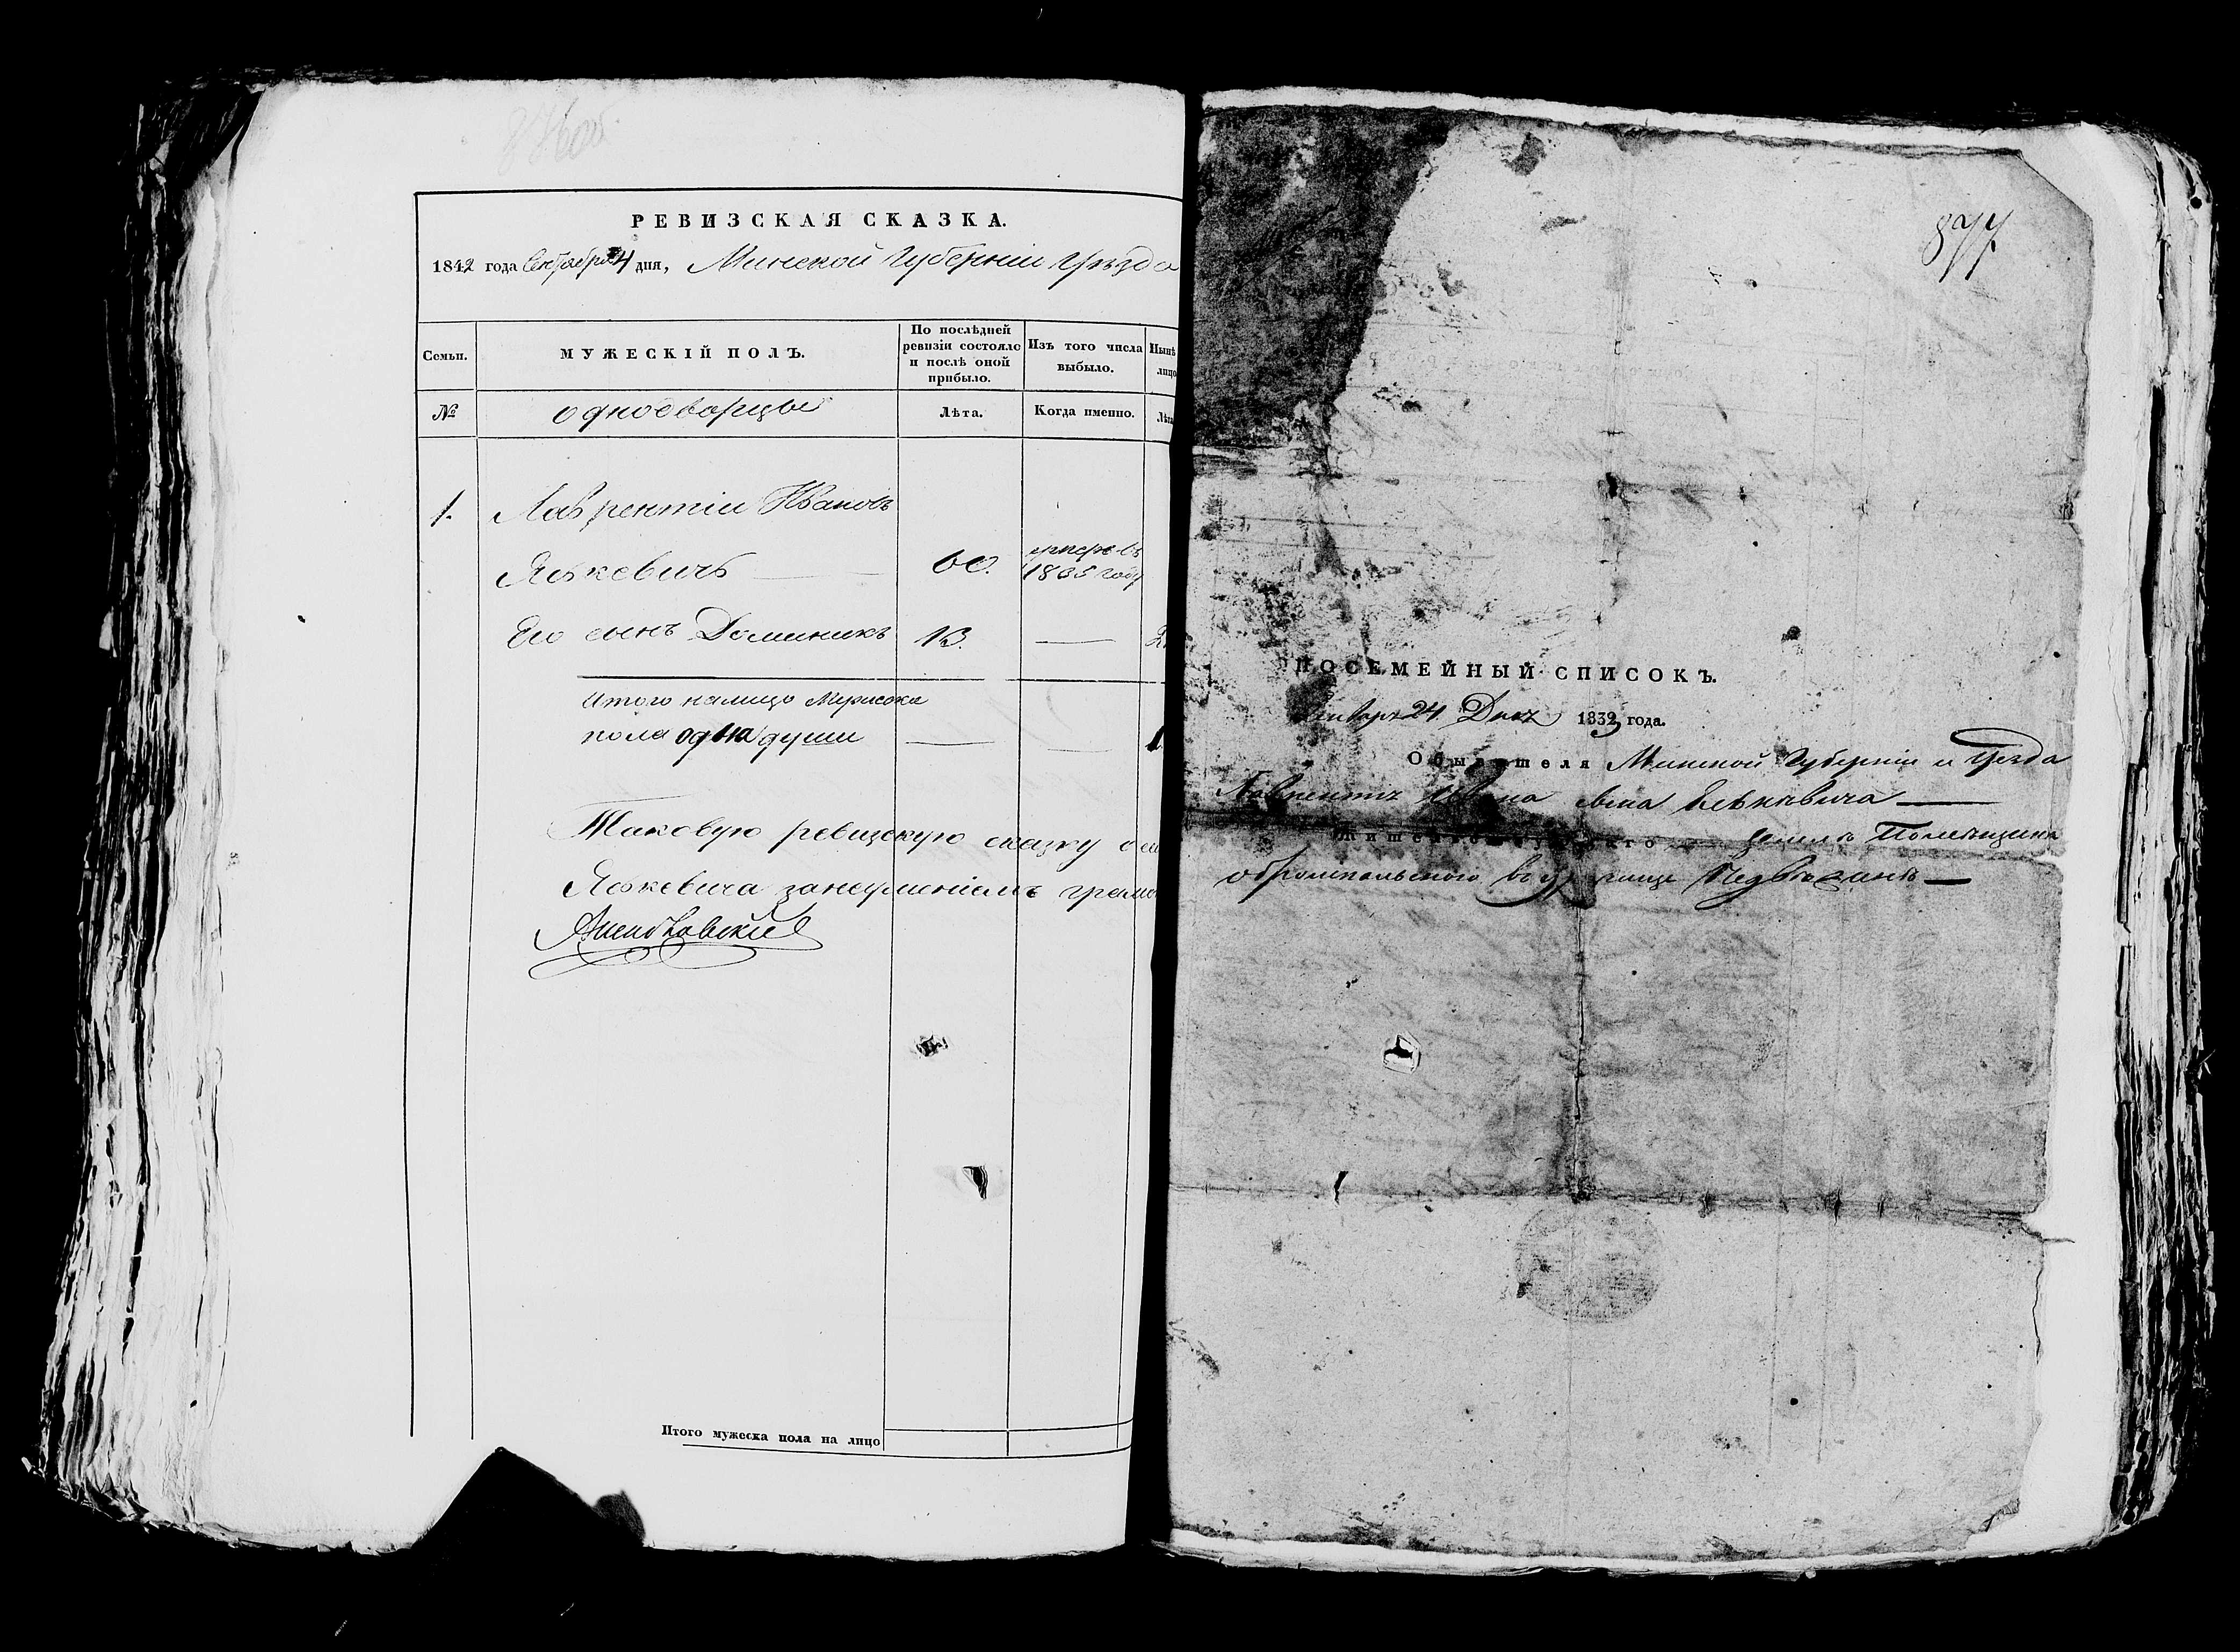 876об
РЕВИЗСКАЯ СКАЗКА.
1842 года Сентября 4 дня, Минской Губерніи Уѣзда
Семьи.
МУЖЕСКІЙ ПОЛЪ.
По послѣдней ревизіи состояло и послѣ оной прибыло.
Изъ того числа выбыло.
Нынѣ лицо
№
однодворцы
Лѣта.
Когда именно.
Лѣта
1.
Лаврентій Ивановъ
Яськевичъ
60.
умеръ въ
1835 году
Его сынъ Доминикъ
13.
Итого налицо Мужеска
пола одна души
1.
Таковую ревизскую сказку
Яськевича занеумѣніемъ грамо
Итого мужеска пола на лицо
877
ПОСЕМЕЙНЫЙ СПИСОКЪ.
Генваря 24 Дня 1833 года.
Обывателя Минской Губерніи и Уезда
Лаврентія Ивана сына Яськевича
Жительствующаго землѣ Помѣщика